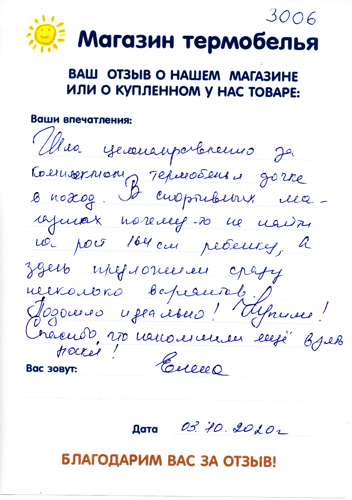 3006
Магазин термобелья
ВАШ ОТЗЫВ О НАШЕМ МАГАЗИНЕ
ИЛИ О КУПЛЕННОМ У НАС ТОВАРЕ:
Ваши впечатления:
Шла целенаправленно за
комплектом термобелья дочке
в поход. В спортивных ма-
газинах почему-то не найти
на рост 164 см ребенку, а
здесь предложили сразу
несколько вариантов.
Подошло идеально! Купили!
Спасибо, что напомнили ещё взять
носки!
Вас зовут: Елена
Дата 03.10.2020г
БЛАГОДАРИМ ВАС ЗА ОТЗЫВ!